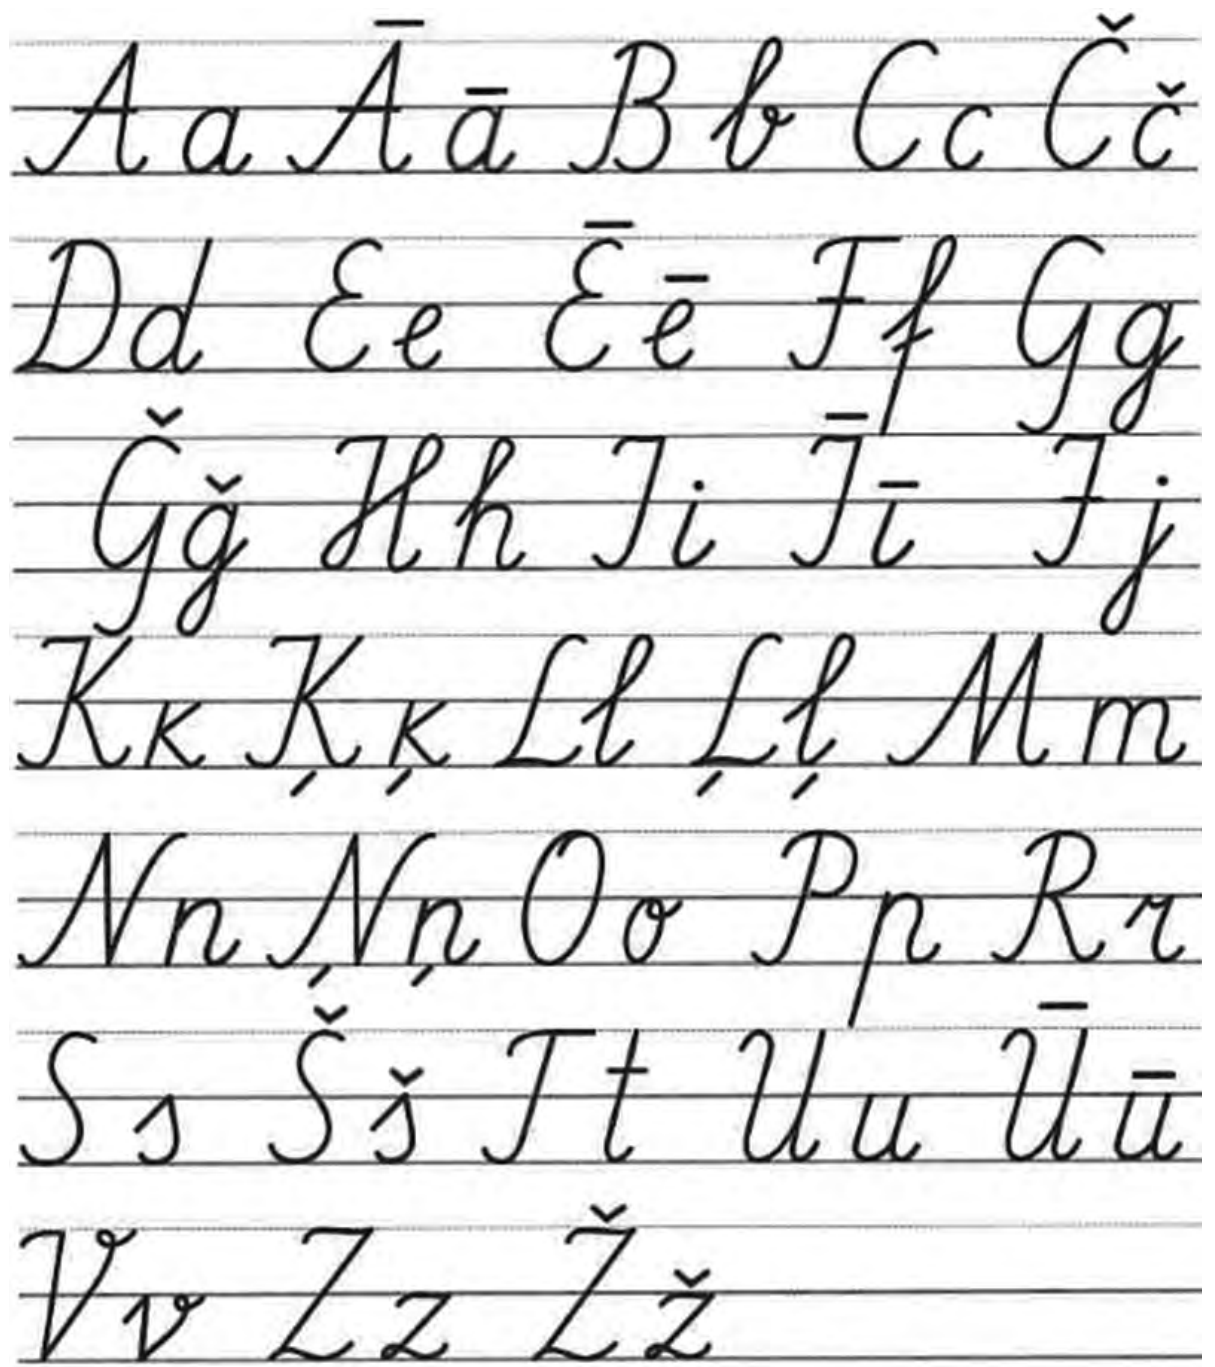 Aa Āā Bb Cc Čč
Dd Ee Ēē Ff Gg
Ǧǧ Hh Ii Īī Jj
Kk Ķķ Ll Ļļ Mm
Nn Ņņ Oo Pp Rr
Ss Šš Tt Uu Ūū
Vv Zz Žž